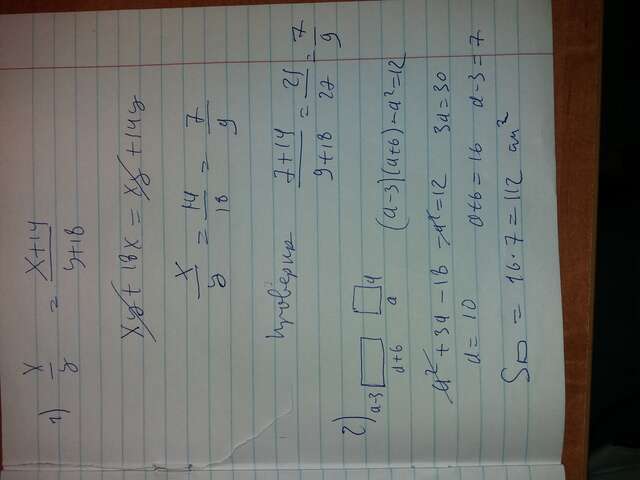 1) x/y = x+14/y+18
xy + 18x = xy + 14y
x/y = 14/18 = 7/9
Проверка 7+14/9+18 = 21/27 = 7/9
2) a-3 a+6 a a (a-3)(a+6)-a²=12
a² + 3a - 18 - a² = 12 3a = 30
a = 10 a+6 = 16 a-3 = 7
S▭ = 16·7 = 112 см²